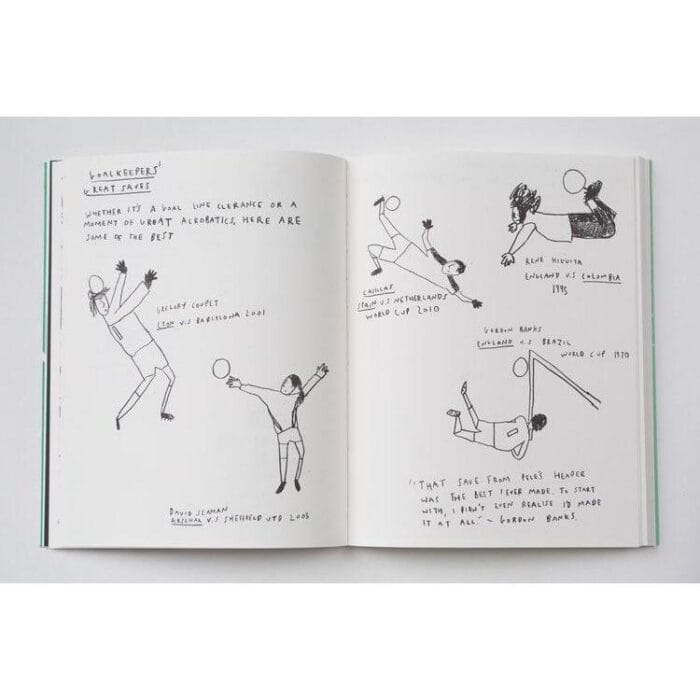 GOALKEEPERS'
GREAT SAVES
WHETHER IT'S A GOAL LINE CLERANCE OR A
MOMENT OF GREAT ACROBATICS, HERE ARE
SOME OF THE BEST
GREGORY COUPET
LYON V.S BARCELONA 2001
DAVID SEAMAN
ARSENAL V.S SHEFFIELD UTD 2003
CASILLAS
SPAIN V.S NETHERLANDS
WORLD CUP 2010
RENE HIGUITA
ENGLAND V.S COLOMBIA
1995
GORDON BANKS
ENGLAND V.S BRAZIL
WORLD CUP 1970
"THAT SAVE FROM PELE'S HEADER
WAS THE BEST I EVER MADE. TO START
WITH, I DIDN'T EVEN REALISE I'D MADE
IT AT ALL." - GORDON BANKS.